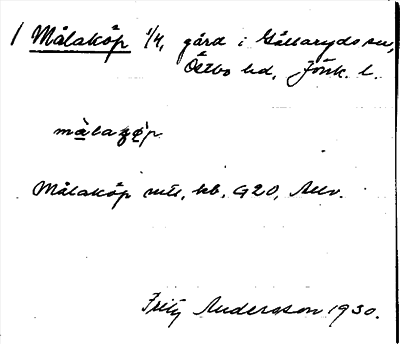 1 Målaköp 1/4, gård i Gällaryds sn,
Östbo hd, Jönk. l.
målaköp
Målaköp mtl, kb, G20, All v.
Fritz Andersson 1930.